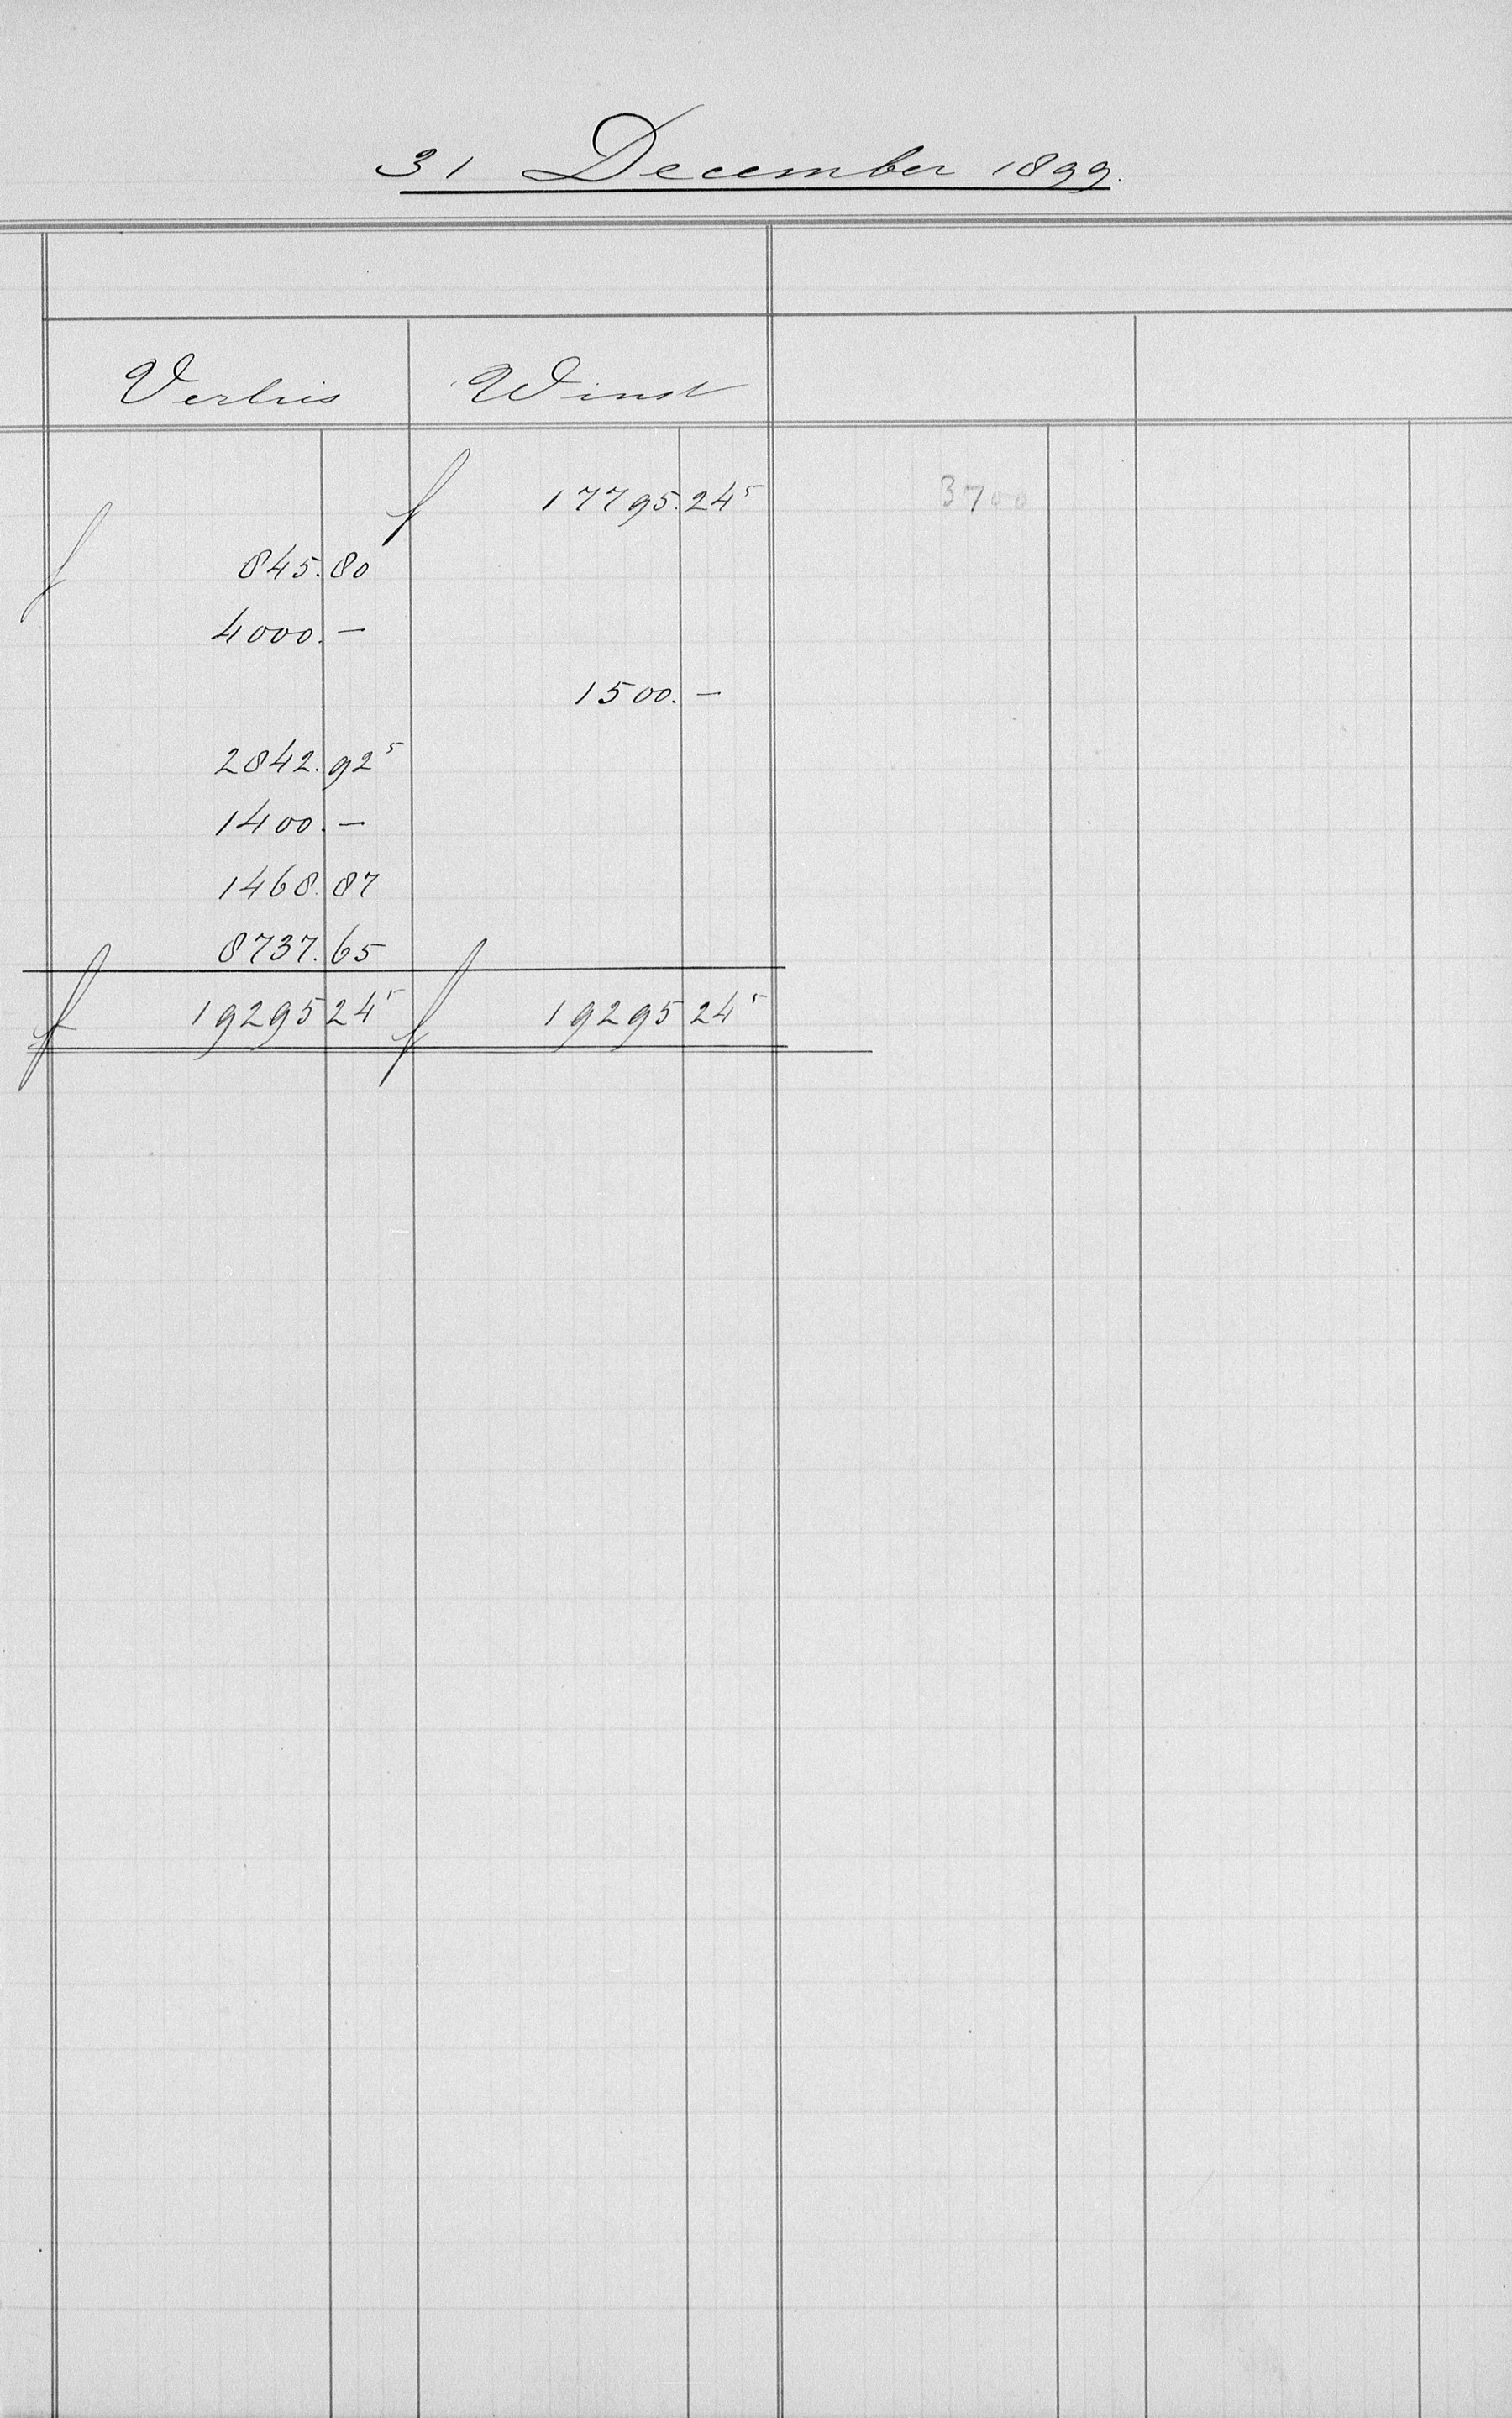 31 December 1899.
Verlies Winst
f 17795.24⁵ 3700
f 845.80
4000.—
1500.—
2842.92⁵
1400.—
1468.87
8737.65
f 19295 24⁵ f 19295 24⁵